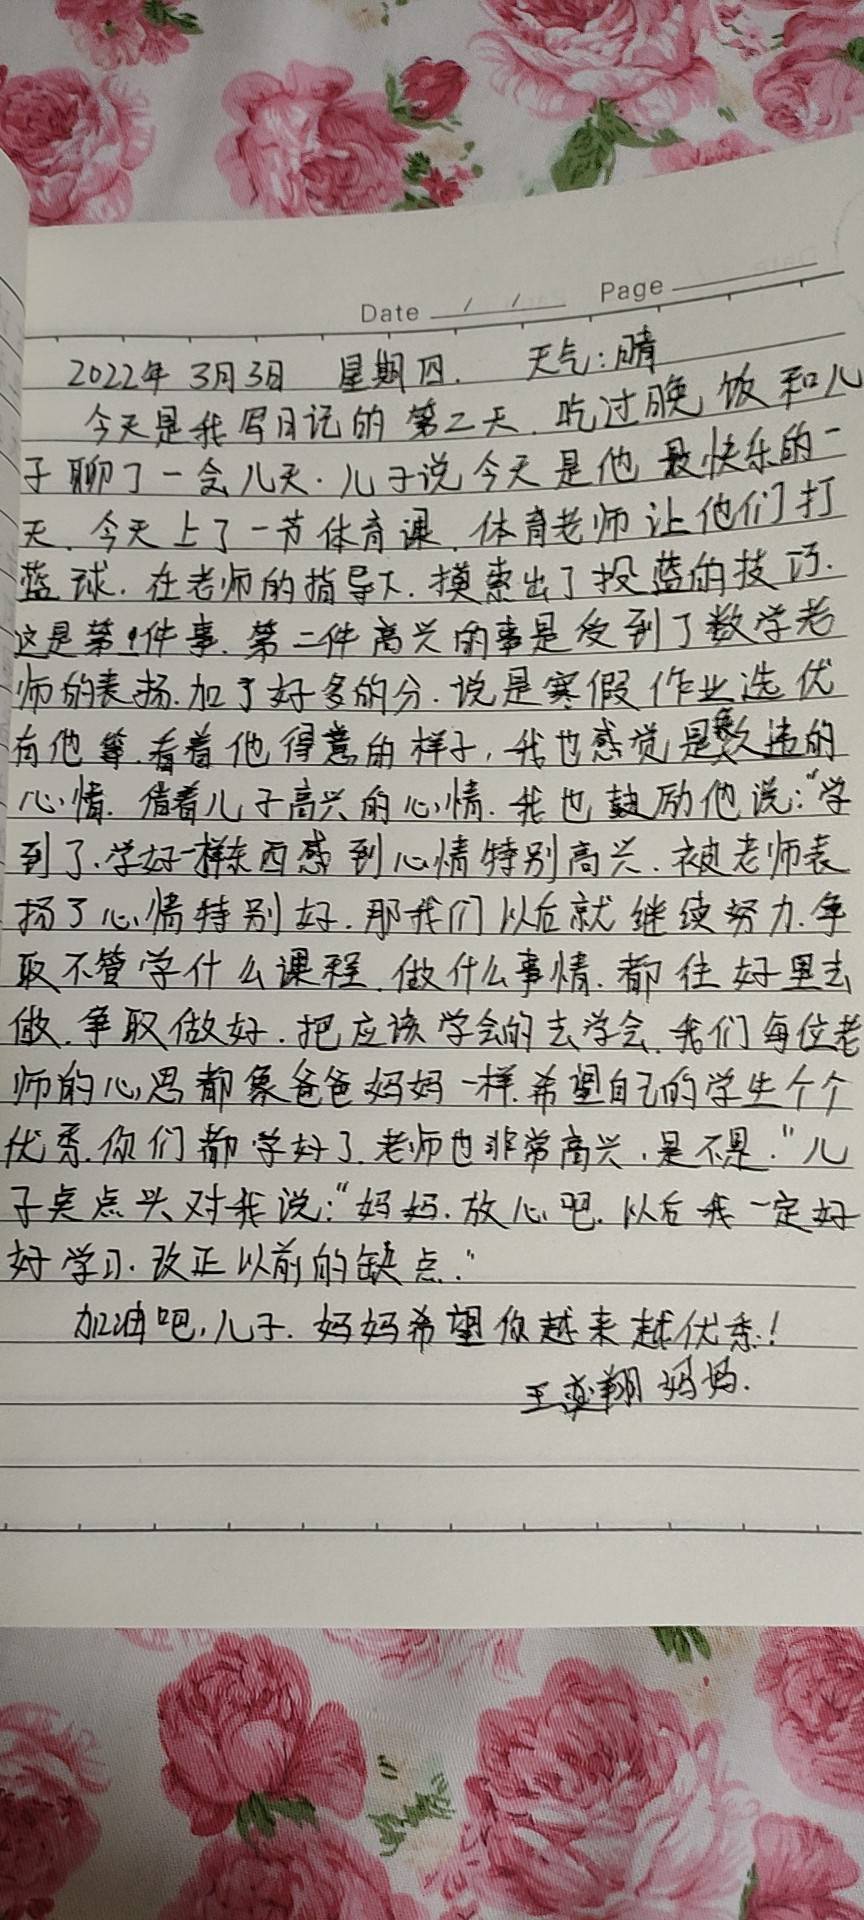 Date / / Page
2022年 3月3日 星期四. 天气:晴
今天是我写日记的第二天.吃过晚饭和儿
子聊了一会儿天.儿子说今天是他最快乐的一
天.今天上了一节体育课.体育老师让他们打
蓝球.在老师的指导下.摸索出了投蓝的技巧.
这是第1件事.第二件高兴的事是受到了数学老
师的表扬.加了好多的分.说是寒假作业选优
有他等.看着他得意的样子,我也感觉是久违的
心情.借着儿子高兴的心情.我也鼓励他说:“学
到了.学好一样东西感到心情特别高兴.被老师表
扬了心情特别好.那我们以后就继续努力.争
取不管学什么课程.做什么事情.都往好里去
做.争取做好.把应该学会的去学会.我们每位老
师的心思都象爸爸妈妈一样.希望自己的学生个个
优秀.你们都学好了.老师也非常高兴,是不是.”儿
子点点头对我说:“妈妈.放心吧.以后我一定好
好学习.改正以前的缺点.”
加油吧,儿子.妈妈希望你越来越优秀!
王奕翔妈妈.